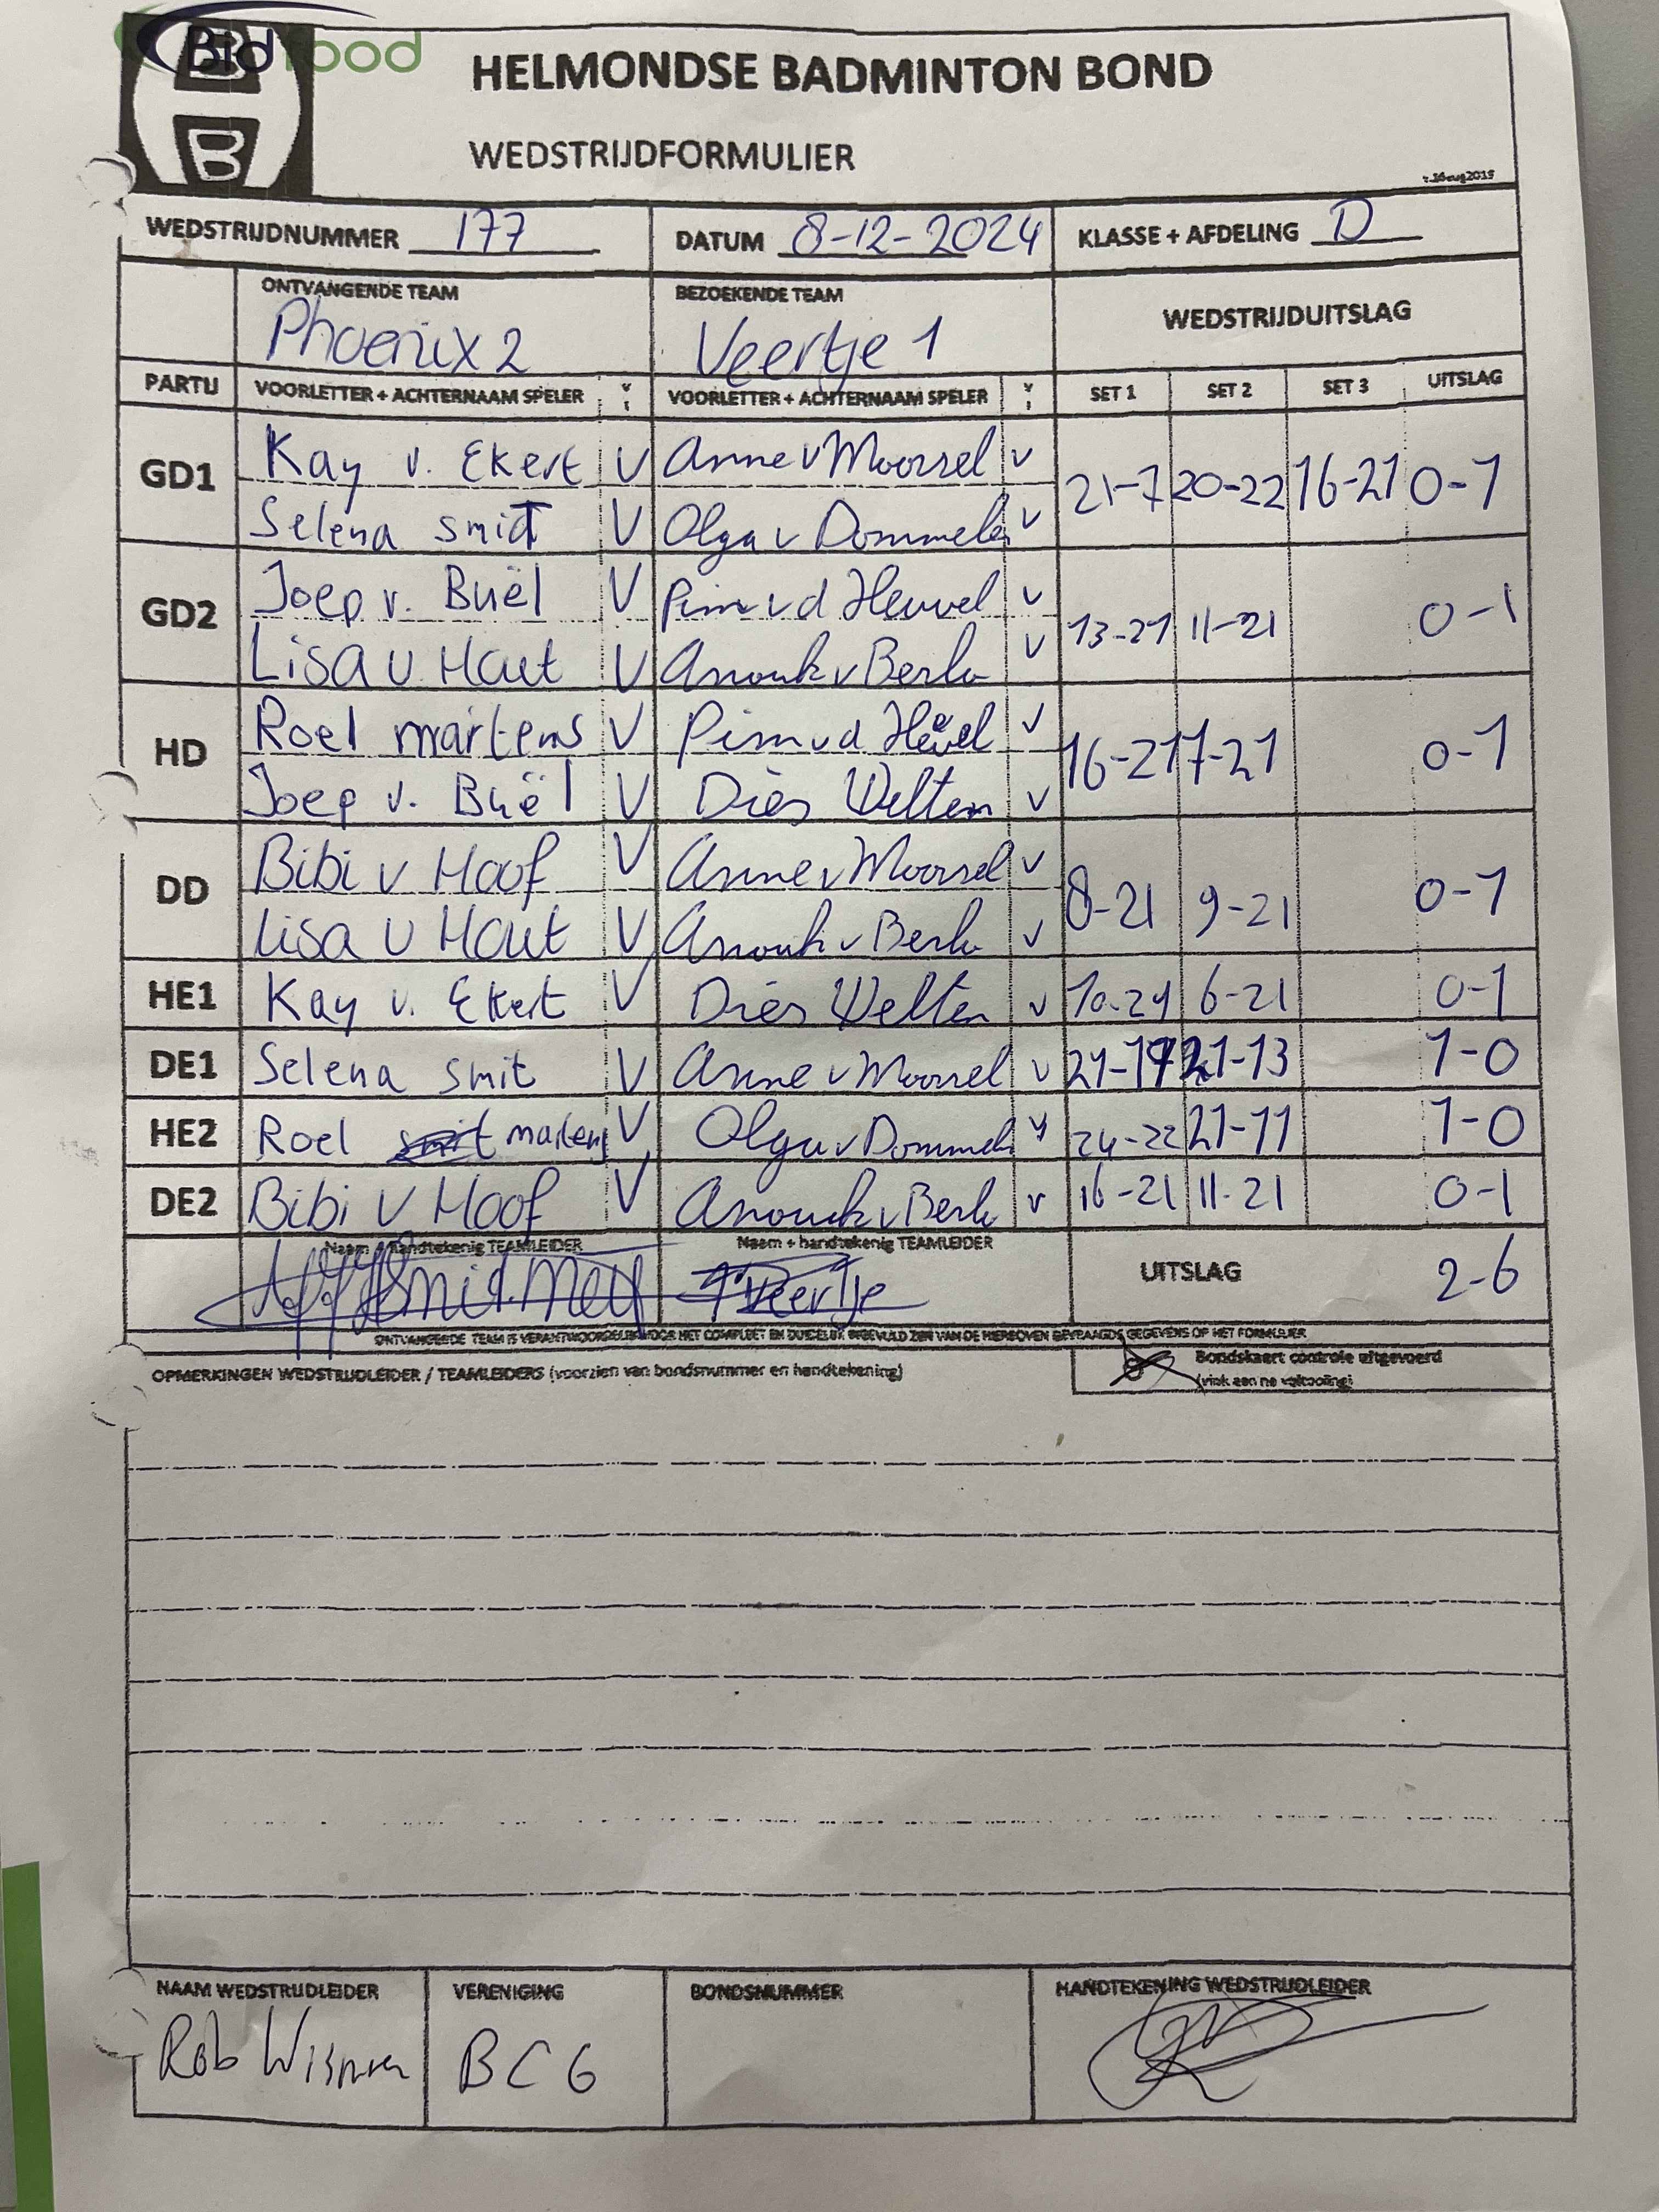 Bidfood
HELMONDSE BADMINTON BOND
WEDSTRIJDFORMULIER
B
WEDSTRIJDNUMMER 177 DATUM 8-12-2024 KLASSE + AFDELING D
ONTVANGENDE TEAM BEZOEKENDE TEAM WEDSTRIJDUITSLAG
Phoenix 2 Veertje 1
PARTIJ VOORLETTER + ACHTERNAAM SPELER V VOORLETTER + ACHTERNAAM SPELER V SET 1 SET 2 SET 3 UITSLAG
GD1 Kay v. Ekert V Anne v Moorsel v 21-7 20-22 16-21 0-1
Selena smit V Olga v Dommelen v
GD2 Joep v. Buël V Pim v d Heuvel v 13-21 11-21 0-1
Lisa v Hout V Anouk v Berlo v
HD Roel martens V Pim v d Heuvel v 16-21 7-21 0-1
Joep v. Buël V Dies Welten v
DD Bibi v Hoof V Anne v Moorsel v 8-21 9-21 0-1
Lisa v Hout V Anouk v Berlo v
HE1 Kay v. Ekert V Dies Welten v 10-21 6-21 0-1
DE1 Selena smit V Anne v Moorsel v 21-17 21-13 1-0
HE2 Roel martens V Olga v Dommelen v 24-22 21-11 1-0
DE2 Bibi v Hoof V Anouk v Berlo v 16-21 11-21 0-1
Naam + handtekenig TEAMLEIDER Naam + handtekenig TEAMLEIDER UITSLAG 2-6
Veertje
ONTVANGENDE TEAM IS VERANTWOORDELIJK VOOR HET COMPLEET EN DUIDELIJK INGEVULD ZIJN VAN DE HIERBOVEN GEVRAAGDE GEGEVENS OP HET FORMULIER
OPMERKINGEN WEDSTRIJDLEIDER / TEAMLEIDERS (voorzien van bondsnummer en handtekening) Bondskaert controle uitgevoerd
(vink aan na voltooiing)
NAAM WEDSTRIJDLEIDER VERENIGING BONDSNUMMER HANDTEKENING WEDSTRIJDLEIDER
Rob BCG